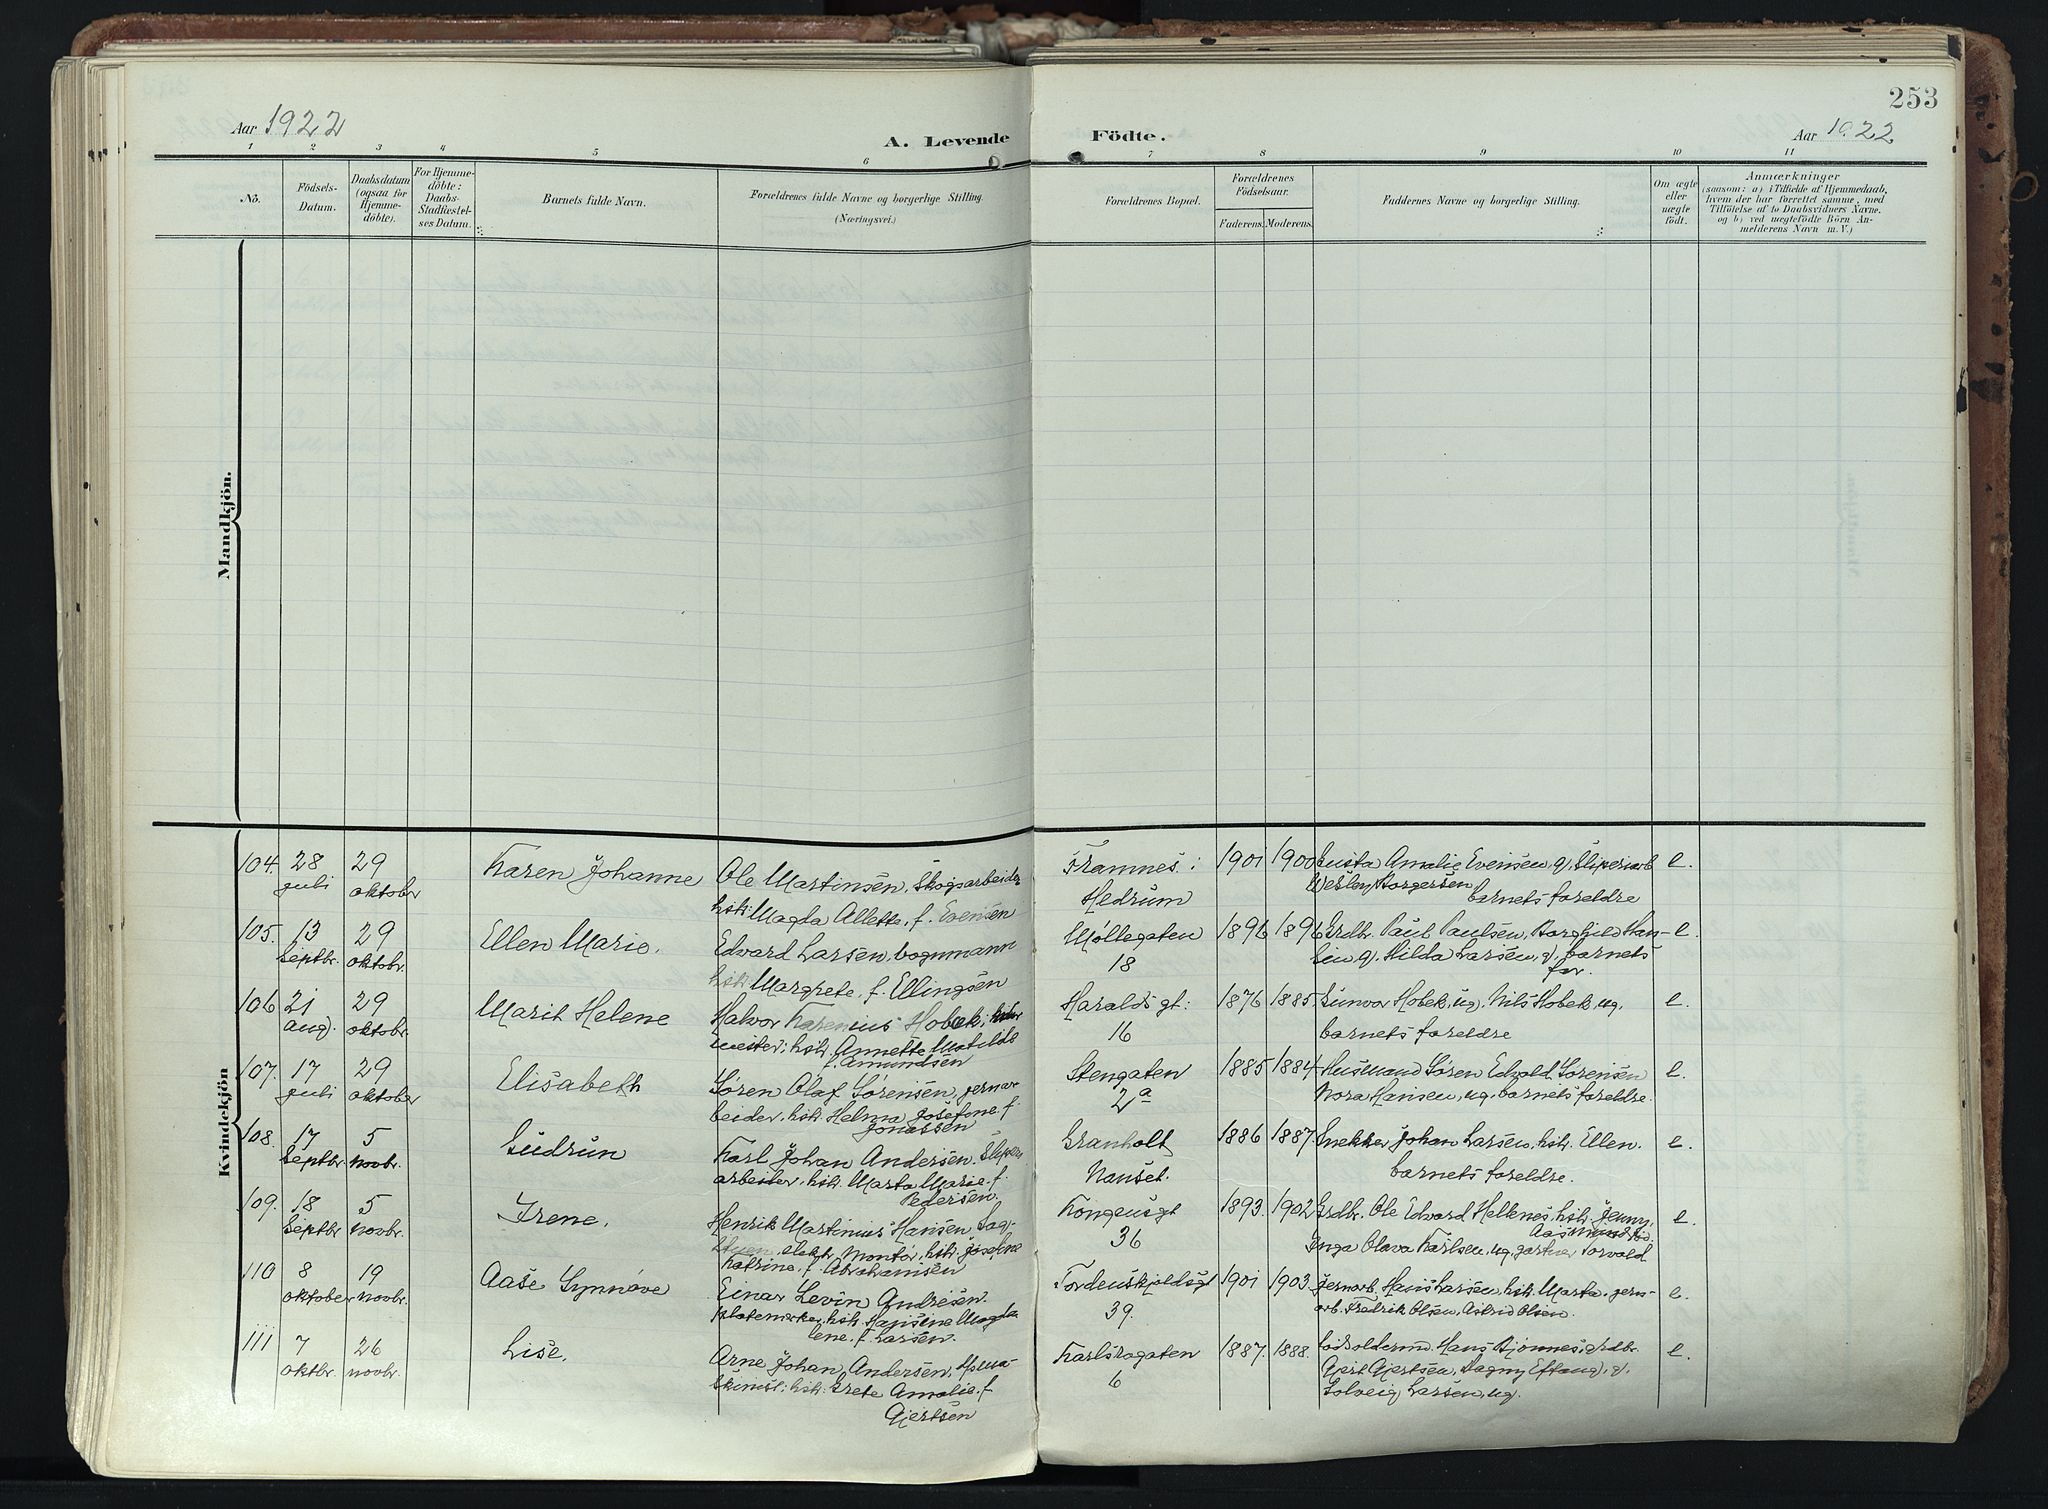 253
Aar 1922
A. Levende Födte.
Aar 1922
1 2 3 4 5 6 7 8 9 10 11
No.
Födsels-
Datum.
Daabsdatum
(ogsaa for
Hjemme-
döbte).
For Hjemme-
döbte:
Daabs-
Stadfæstel-
ses Datum.
Barnets fulde Navn.
Forældrenes fulde Navne og borgerlige Stilling.
(Næringsvei.)
Forældrenes Bopæl.
Forældrenes
Födselsaar.
Faderens.
Moderens.
Faddernes Navne og borgerlige Stilling.
Om ægte
eller
uægte
födt.
Anmærkninger
(saasom: a) i Tilfælde af Hjemmedaab,
hvem der har forrettet samme, med
Tilföielse af to Daabsvidners Navne.
og b) ved uægtefödte Börn An-
melderens Navn m. V.)
Mandkjön.
Kvindekjön
104. 28
juli
29
oktober
Karen Johanne
Ole Martinsen, Skogsarbeider
hstr. Magda Allette, f. Evensen
Framnes i
Hedrum
1901 1900
Amalie Evensen, g, Sliperiarb
Wesley Borgersen
barnets foreldre
e.
105. 13
Septbr.
29
oktobr.
Ellen Marie.
Edvard Larsen, vognmann
hstr. Margrete, f. Ellingsen
Møllegaten
18
1896 1896
Grdbr. Paul Paulsen, Borghild Han-
sen g. Hilda Larsen, g, barnets
far.
e.
106 21
aug.
29
oktobr.
Marit Helene
Halvor Karenius Hobek,
mester, hstr. Annette Matilde
f. Amundsen
Haralds gt.
16
1876 1885
Gunvor Hobek, ug, Nils Hobek, ug,
barnets foreldre
e
107. 17
juli
29
oktober
Elisabeth
Søren Olaf Sørensen, jernar-
beider, hstr. Helma Josefone f.
Jonassen
Stengaten
2a
1885 1884
Husmand Søren Edvald Sørensen
Nora Hansen, ug, barnets foreldre.
e.
108. 17
Septbr.
5
novbr.
Gudrun
Karl Johan Andersen, Sliperi
arbeider, hstr. Marta Marie f.
Pedersen.
Granholt
Nanset.
1886 1887.
Snekker Johan Larsen, hstr. Ellen.
barnets foreldre.
e.
109. 18
Septbr
5
novbr.
Irene.
Henrik Martinius Hansen
elektr. montør, hstr. Josefine
Katrine, f. Abrahamsen
Kongensgt
36
1893. 1902
Grdbr. Ole Edvard Helknes, hstr. Jenny,
Inga Olava Karlsen, ug, gartner Torvald
Aasmund
e.
110 8
oktober
19
novbr.
Aase Synnøve
Einar Levin Andresen.
platearbeider, hstr. Hansine Magda
lene, f. Larsen.
Tordenskjoldsgt
39.
1901 1903.
Jernarb. Hans Larsen, hstr. Marta, jern-
arb. Fredrik Olsen, Astrid Olsen.
e.
111 7
oktbr.
26
novbr.
Lise.
Arne Johan Andersen,
hstr. Grete Amalie, f.
Gjertsen
Karlsrogaten
6
1887. 1888.
Losolderm. Hans Bjønnes, grdbr.
Gjert Gjertsen, Dagny Eftang, g.
Solveig Larsen, ug.
e.